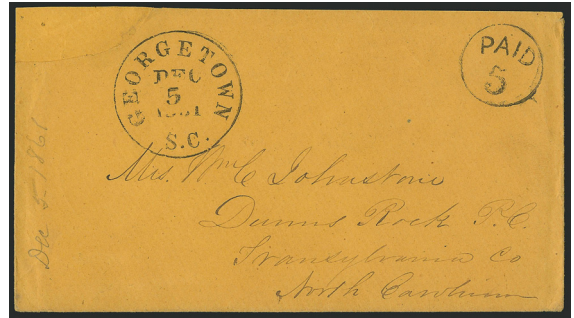 GEORGETOWN
DEC
5
1861
S.C.
PAID
5
Mrs. Wm C Johnstone
Dunns Rock P.O.
Transylvania Co
North Carolina
Dec 5 1861